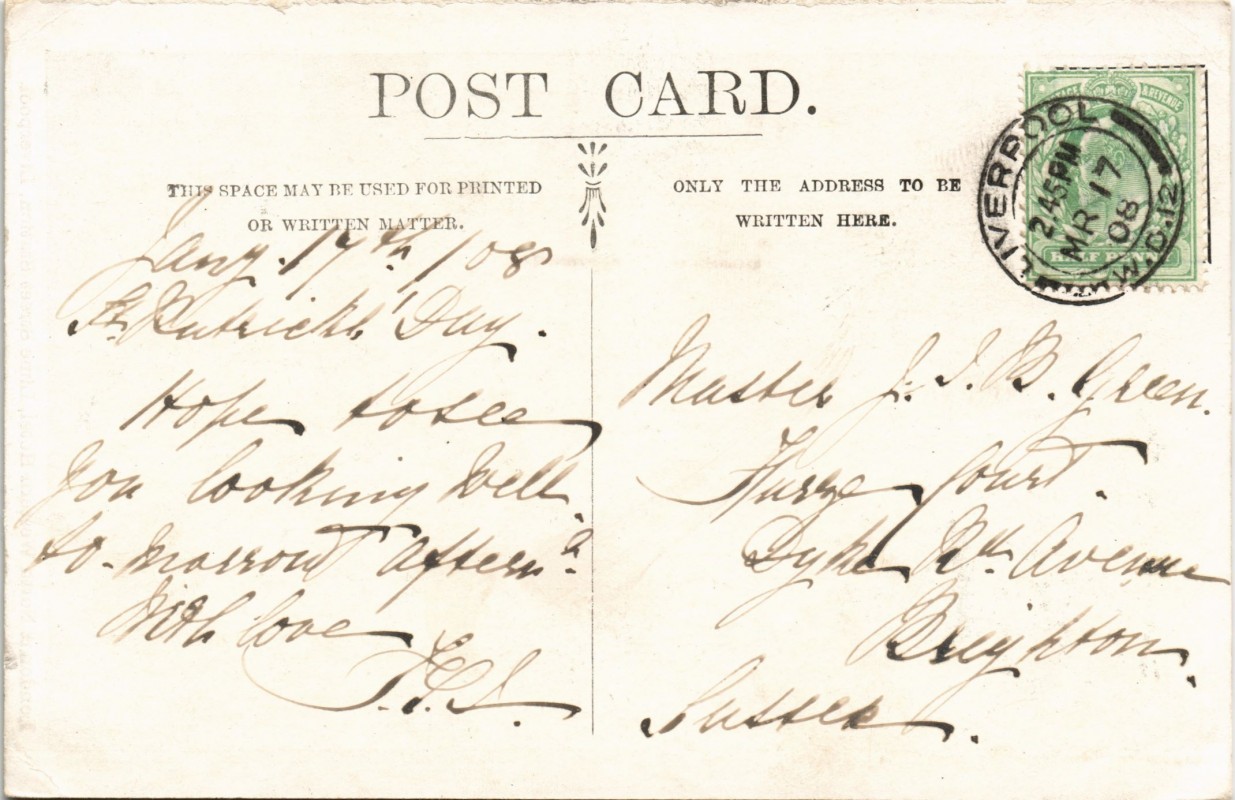 POST CARD.
THIS SPACE MAY BE USED FOR PRINTED
OR WRITTEN MATTER.
Jany. 17th /08
St. Patricks' Day.
Hope to see
you looking well
to-morrow aftern.
With love
ONLY THE ADDRESS TO BE
WRITTEN HERE.
POSTAGE & REVENUE
HALF PENNY
LIVERPOOL
2.45 PM
MR 17
08
Master J. I. B. Green.
Furze Court.
Dyke Rd. Avenue
Brighton.
Sussex.